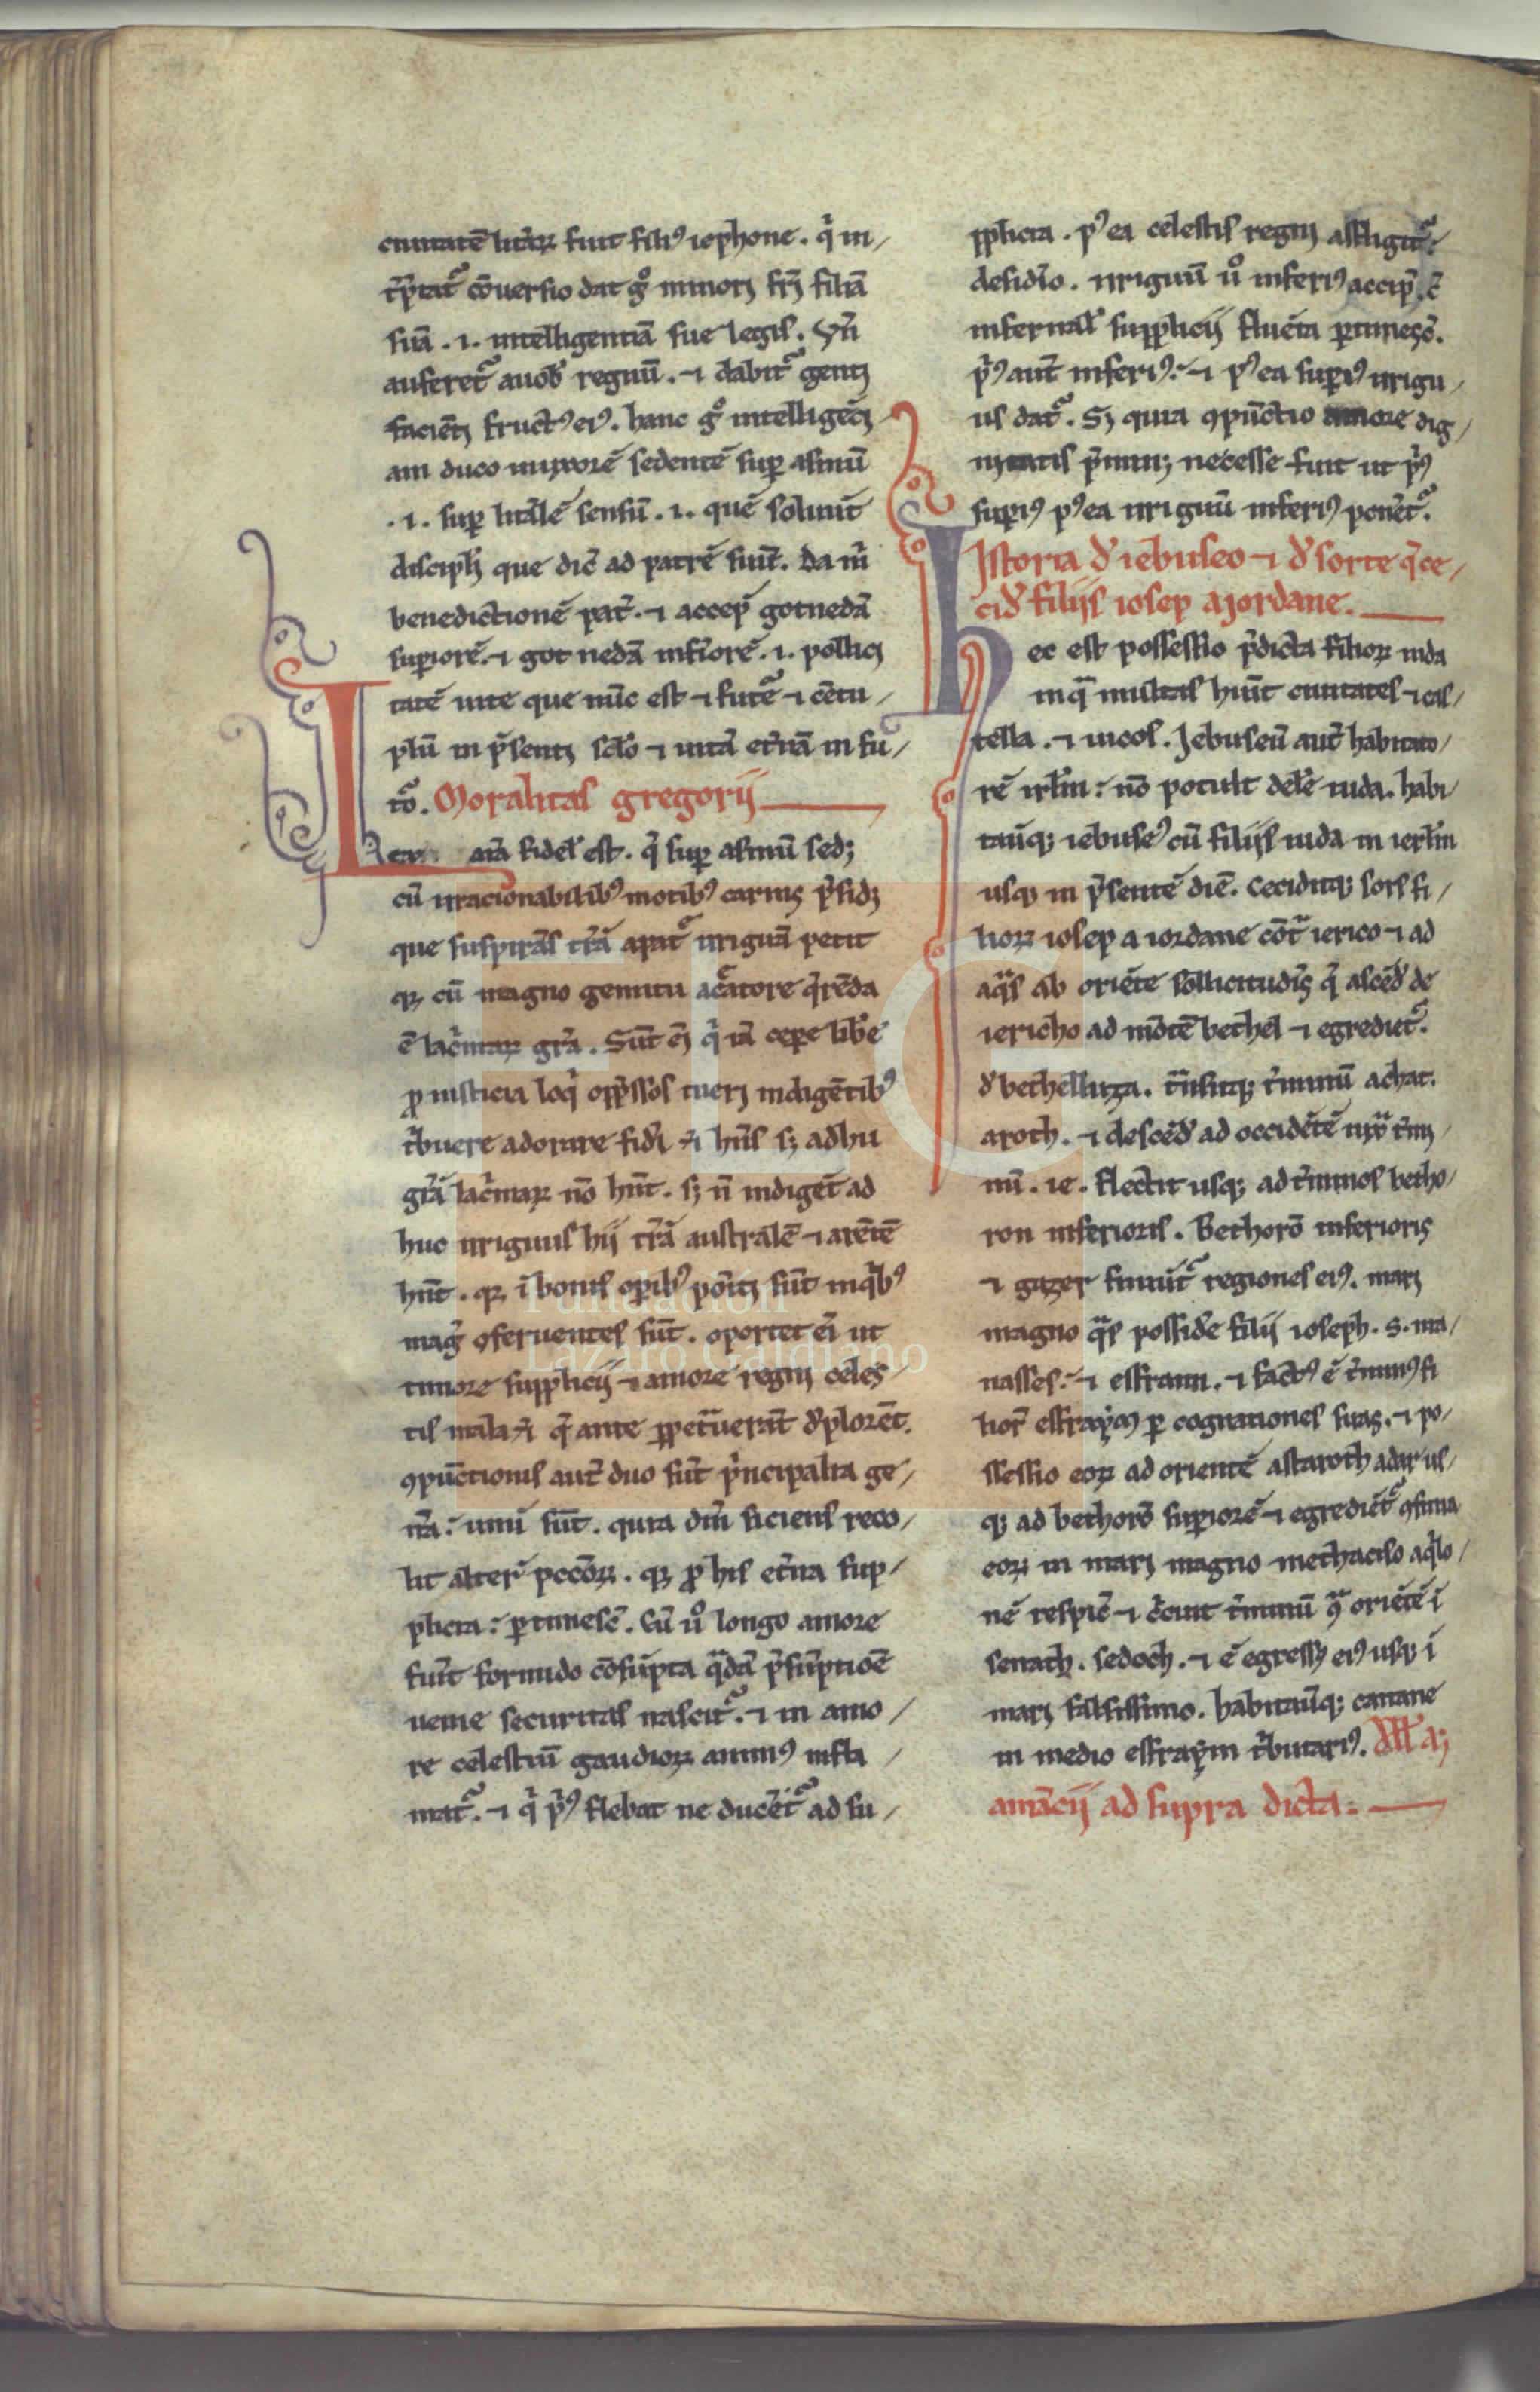 ciuitatē litarꝝ fuit filiꝰ iephone. q̇ in/
t̄p̄tat᷑ cōuersio dat gͦ minorꝭ fr̄ꝭ filiā
suā .ı. intelligentiā sue legis. Vn̄
auferet᷑ auob̄ regnū. ⁊ dabit᷑ gentꝭ
faciēti fructꝰ eiꝰ. hanc gͦ intelligēcꝭ
am duco in uxorē sedentē suꝑ asinū
.ı. suꝑ litalē sensū .ı. quē soluūt
discipli que dic̄ ad patrē suū. Da m̄
benedictionē pat̄. ⁊ accep̄ gotnedā
suꝑiorē. ⁊ got nedā inf̄iorē .ı. pollici
tatē uite que nūc est ⁊ futē᷑ ⁊ cētu/
plū in p̄senti sclo ⁊ uitā et̄nā in fu/
tō. Moralitas gregorij
aīa fidel̄ est. q̄ suꝑ asinū sedꝫ
cū irracionabilibꝰ motibꝰ carnis p̄sidꝫ
que suspirās tr̄ā apat᷑ irriguā petit
qꝫ cū magno gemitu ac̄atore q̄rēda
ē lac̄marꝝ gr̄a. Sūt eī q̇ iā cepe lib̄e
ꝓ iusticia loq̇ opp̄ssos tueri indigētibꝰ
t̄buere adorare fidi ⁊ hn̄s sꝫ adhu
gr̄ā lac̄marꝝ nō hn̄t. sꝫ n̄ indigēt ad
huc irriguus hij tr̄ā australē ⁊ arētē
hn̄t. qꝫ ī bonis oꝑibꝰ poīti sūt inq̄bꝰ
mag̃ ꝯferuentes sūt. oportet eī ut
timore supplicij ⁊ amore regni celes/
tis mala ⁊ q̄ ante ꝑpet̄uerāt d̄plorēt.
ꝯpūctionis aut̄ duo sūt p̄ncipalia ge/
nā. unū sūt. quia dm̄ siciens reco/
lit alterē pccōrꝝ. qꝫ ꝓ his et̄na sup/
plicia. ꝑtimescē. Cū uͦ longo amore
fuīt formido cōsūpta q̄dā p̄sūptioē
uenie securitas nascit᷑. ⁊ in amo/
re celestiū gaudiorꝝ animꝰ infla/
mat᷑. ⁊ q̇ p̄ꝰ flebat ne ducēt᷑ ad su/
pplicia. pꝰ ea celestis regni affligit᷑.
desidīo. irriguū uͦ inferiꝰ accip̄. c̄
infernal̄ supplicij fluēta ꝑtimesc̄.
p̄ꝰ aut̄ inferiꝰ. ⁊ pꝰ ea suꝑiꝰ irrigu/
us dat᷑. Sꝫ quia ꝯpūctio amore dig/
nitatis p̄minꝫ necesse fuit ut p̄ꝰ
suꝑiꝰ pꝰ ea irriguū inferiꝰ ponēt᷑.
Istoria d̄ iebuseo ⁊ d̄ sorte q̄ce/
cid̄ filijs iosep aiordane.
hec est possessio p̄dicta filiorꝝ iuda
inq̄ multas hn̄t ciuitates ⁊ cas/
tella. ⁊ uicos. Iebuseū aut̄ habitato/
rē irlm̄. nō potuīt del̄e iuda. habi/
tauitqꝫ iebuseꝰ cū filijs iuda in ierlm̄
usqꝫ in p̄sentē diē. Ceciditqꝫ sors fi/
liorꝝ iosep a iordane cōt̄ ierico ⁊ ad
aq̄s ab oriēte sollicitudīs q̄ ascēd̄ de
iericho ad mōtē bethel ⁊ egrediet᷑.
d̄ bethelluza. t̄nsitqꝫ t̄minū achat.
aroth. ⁊ descēd̄ ad occidētē iux̄ t̄mi/
nū. ie. flectit usqꝫ ad t̄minos betho/
ron inferioris. Bethorō inferioris
⁊ gazer finiūt᷑ regiones eiꝰ. mari
magno q̄s possid̄e filij ioseph. s. ma/
nasses. ⁊ effraim. ⁊ factꝰ ē t̄minꝰ fi
lior̄ effraym ꝑ cognationes suas. ⁊ po/
ssessio eorꝝ ad orientē astaroth adar us/
qꝫ ad bethorō suꝑiorē ⁊ egrediēt᷑ ꝯfinia
eorꝝ in mari magno methaciso aq̇lo/
nē respic̄ ⁊ c̄cuit t̄minū ꝯ̄ oriētē ī
senath. sedoch. ⁊ ē egressꝰ eiꝰ usqꝫ ī
mari falsissimo. habitauitqꝫ canane
in medio effraym t̄butariꝰ.
amācij ad supra dicta.